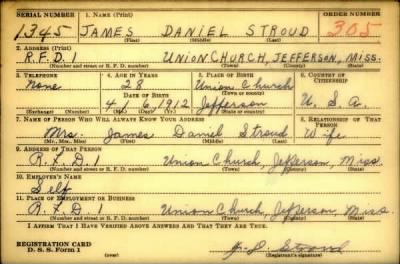 SERIAL NUMBER 1. NAME (Print) ORDER NUMBER
1345 JAMES DANIEL STROUD 305
(First) (Middle) (Last)
2. ADDRESS (Print)
R.F.D. 1 UNION CHURCH, JEFFERSON, MISS.
(Number and street or R. F. D. number) (Town) (County) (State)
3. TELEPHONE 4. AGE IN YEARS 5. PLACE OF BIRTH 6. COUNTRY OF CITIZENSHIP
None 28 Union Church
DATE OF BIRTH (Town or county)
4 6 1912 Jefferson U. S. A.
(Exchange) (Number) (Mo.) (Day) (Yr.) (State or country)
7. NAME OF PERSON WHO WILL ALWAYS KNOW YOUR ADDRESS 8. RELATIONSHIP OF THAT PERSON
Mrs. James Daniel Stroud Wife
(Mr., Mrs., Miss) (First) (Middle) (Last)
9. ADDRESS OF THAT PERSON
R.F.D. 1 Union Church, Jefferson, Miss.
(Number and street or R. F. D. number) (Town) (County) (State)
10. EMPLOYER'S NAME
Self
11. PLACE OF EMPLOYMENT OR BUSINESS
R.F.D. 1 Union Church, Jefferson, Miss.
(Number and street or R. F. D. number) (Town) (County) (State)
I AFFIRM THAT I HAVE VERIFIED ABOVE ANSWERS AND THAT THEY ARE TRUE.
REGISTRATION CARD
D. S. S. Form 1 J. D. Stroud
(Registrant's signature)